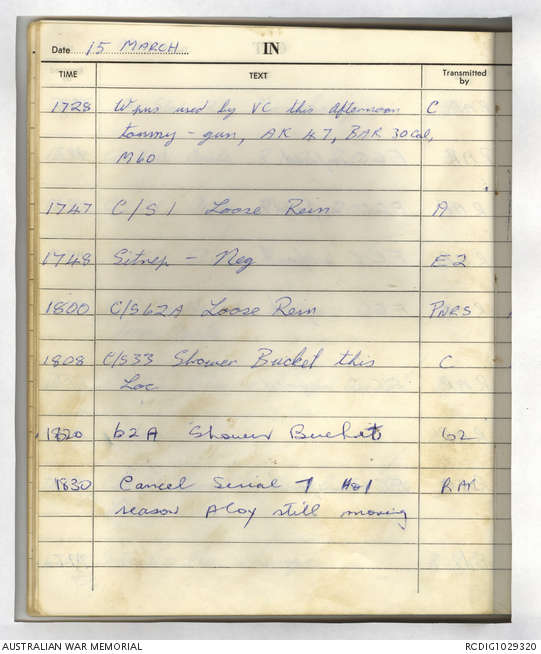 Date 15 MARCH IN
TIME TEXT Transmitted by
1728 Wpns used by VC this afternoon C
tommy - gun, AK 47, BAR 30 Cal,
M60
1747 C/S 1 Loose Rein A
1748 Sitrep - Neg E2
1800 C/S 62A Loose Rein PNRS
1808 C/S 33 Shower Bucket this C
Loc
1820 62A Shower Bucket 62
1830 Cancel Serial 7 RAR
reason A Coy still moving
AUSTRALIAN WAR MEMORIAL RCDIG1029320